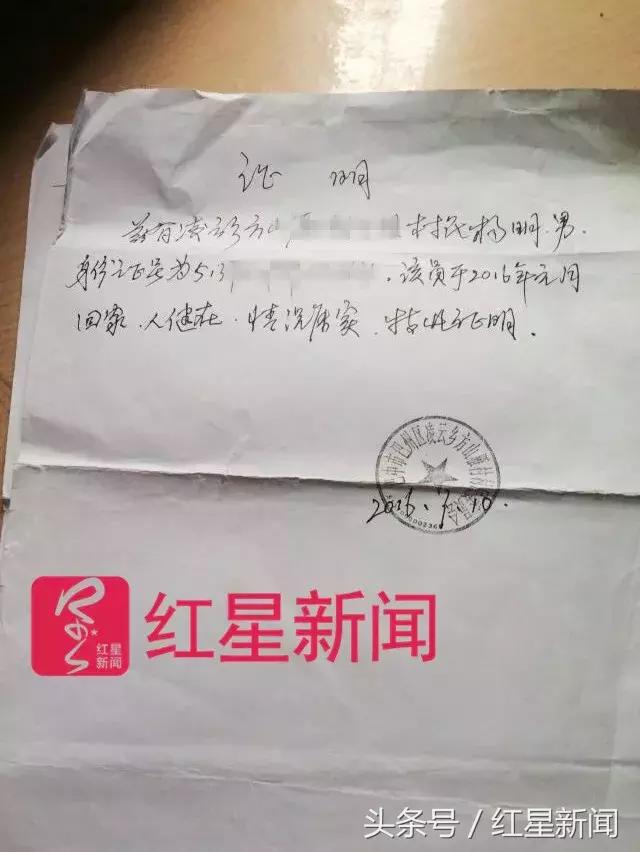 证 明
兹有凌云乡方山 村民杨明.男.
身份证号为513 .该员于2016年元月
回家.人健在.情况属实.特此证明.
巴中市巴州区凌云乡方山雁村村民委员会
2016.
10.
红星新闻
红星
新闻
头条号/红星新闻